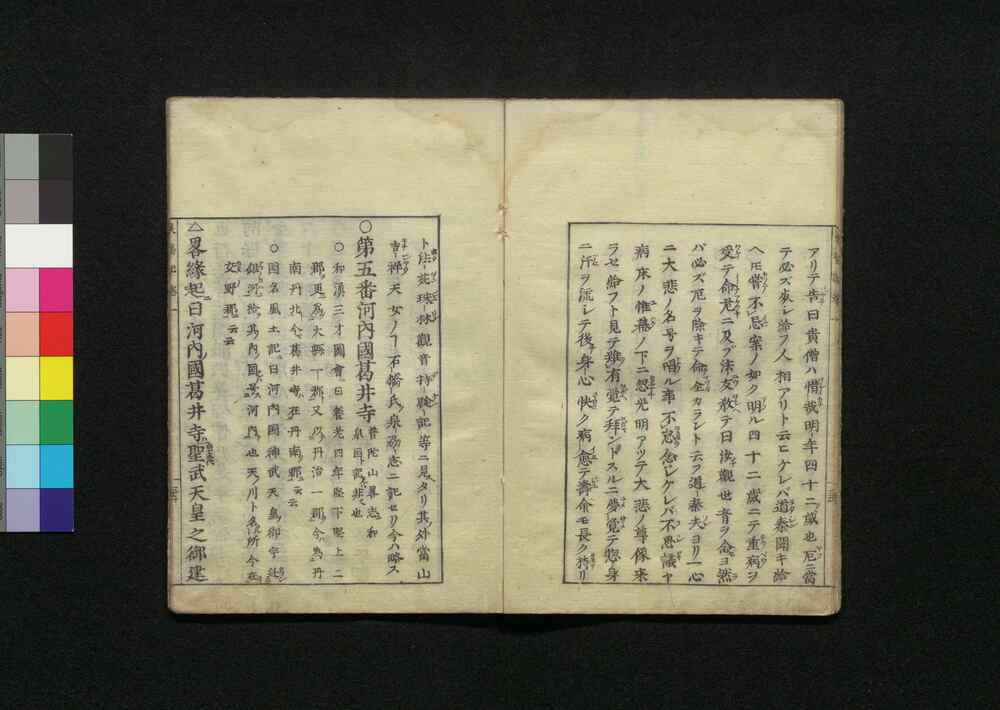 アリテ告曰貴僧ハ惜哉明年四十二歳也厄ニ當
テ必ズ来シ給フ人相アリト云ヒケレバ道泰聞キ給
ヘモ常不忌案ノ如ク明ル四十二歳ニテ重病ヲ
受テ命危ニ及ブ法友教テ曰汝觀世音ヲ念ヨ然
バ必ズ厄ヲ除キテ命全カラント云フ道泰夫ヨリ一心
ニ大悲ノ名号ヲ唱ル事不怠念シケレバ不思議ヤ
病床ノ帷幕ノ下ニ忽光明アツテ大悲ノ尊像来
ラセ給フト見テ難有覚テ拜ントスルニ夢覚テ惣身
ニ汗ヲ流シテ後身心快ク病愈テ壽命モ長ク持リ
ト法苑珠林觀音持驗記等ニ見タリ其外當山
吉祥天女ノ石橋氏泉州志ニ記セリ今ハ略ス
○第五番河內國葛井寺
普陀山畧志和泉国記非也
○和漢三才圖會曰養老四年堅下堅上二
郡更為大縣一郡又以丹治一郡今為丹
南丹北今葛井寺在丹南郡云云
○国名風土記曰河內國神武天皇御宇
銀河其內国号河內也天ノ川ト名所今在
交野郡云云
△畧緣起曰河內國葛井寺聖武天皇之御建